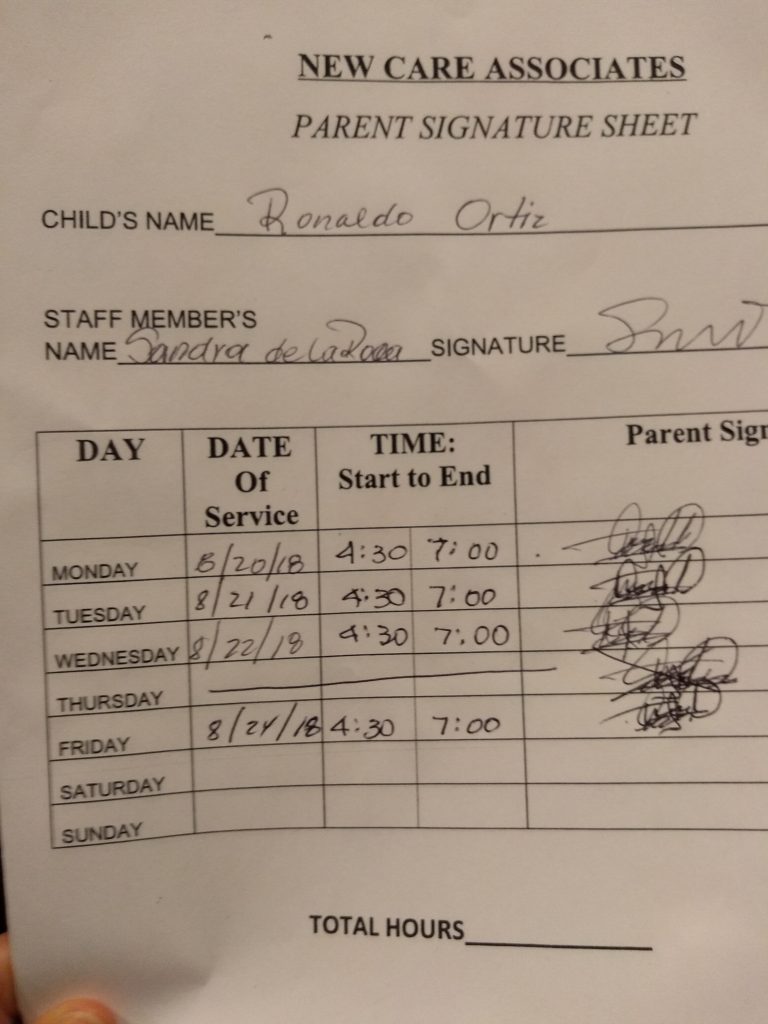 NEW CARE ASSOCIATES
PARENT SIGNATURE SHEET
CHILD'S NAME Ronaldo Ortiz
STAFF MEMBER'S
NAME Sandra de la SIGNATURE
DAY DATE Of Service TIME: Start to End Parent Sign
MONDAY 8/20/18 4:30 7:00
TUESDAY 8/21/18 4:30 7:00
WEDNESDAY 8/22/18 4:30 7:00
THURSDAY
FRIDAY 8/24/18 4:30 7:00
SATURDAY
SUNDAY
TOTAL HOURS